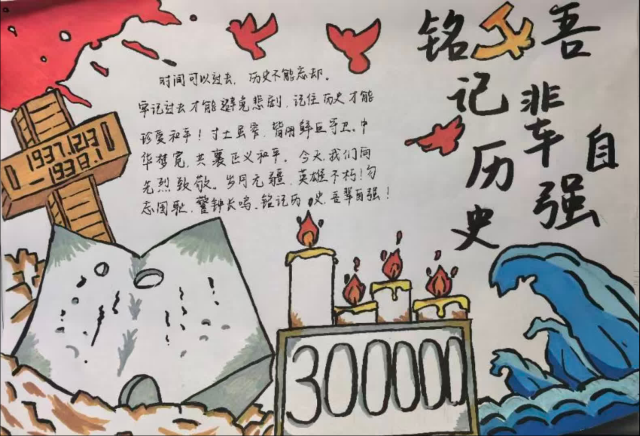 铭记历史
吾辈自强
时间可以过去,历史不能忘却。
牢记过去才能避免悲剧,记住历史才能
珍爱和平!寸土守卫。中
华梦,共襄正义和平。今天我们向
先烈致敬。岁月无疆,英雄不朽!勿
忘国耻,警钟长鸣。铭记历史,吾辈自强!
1937.12.13
—1938.1
300000